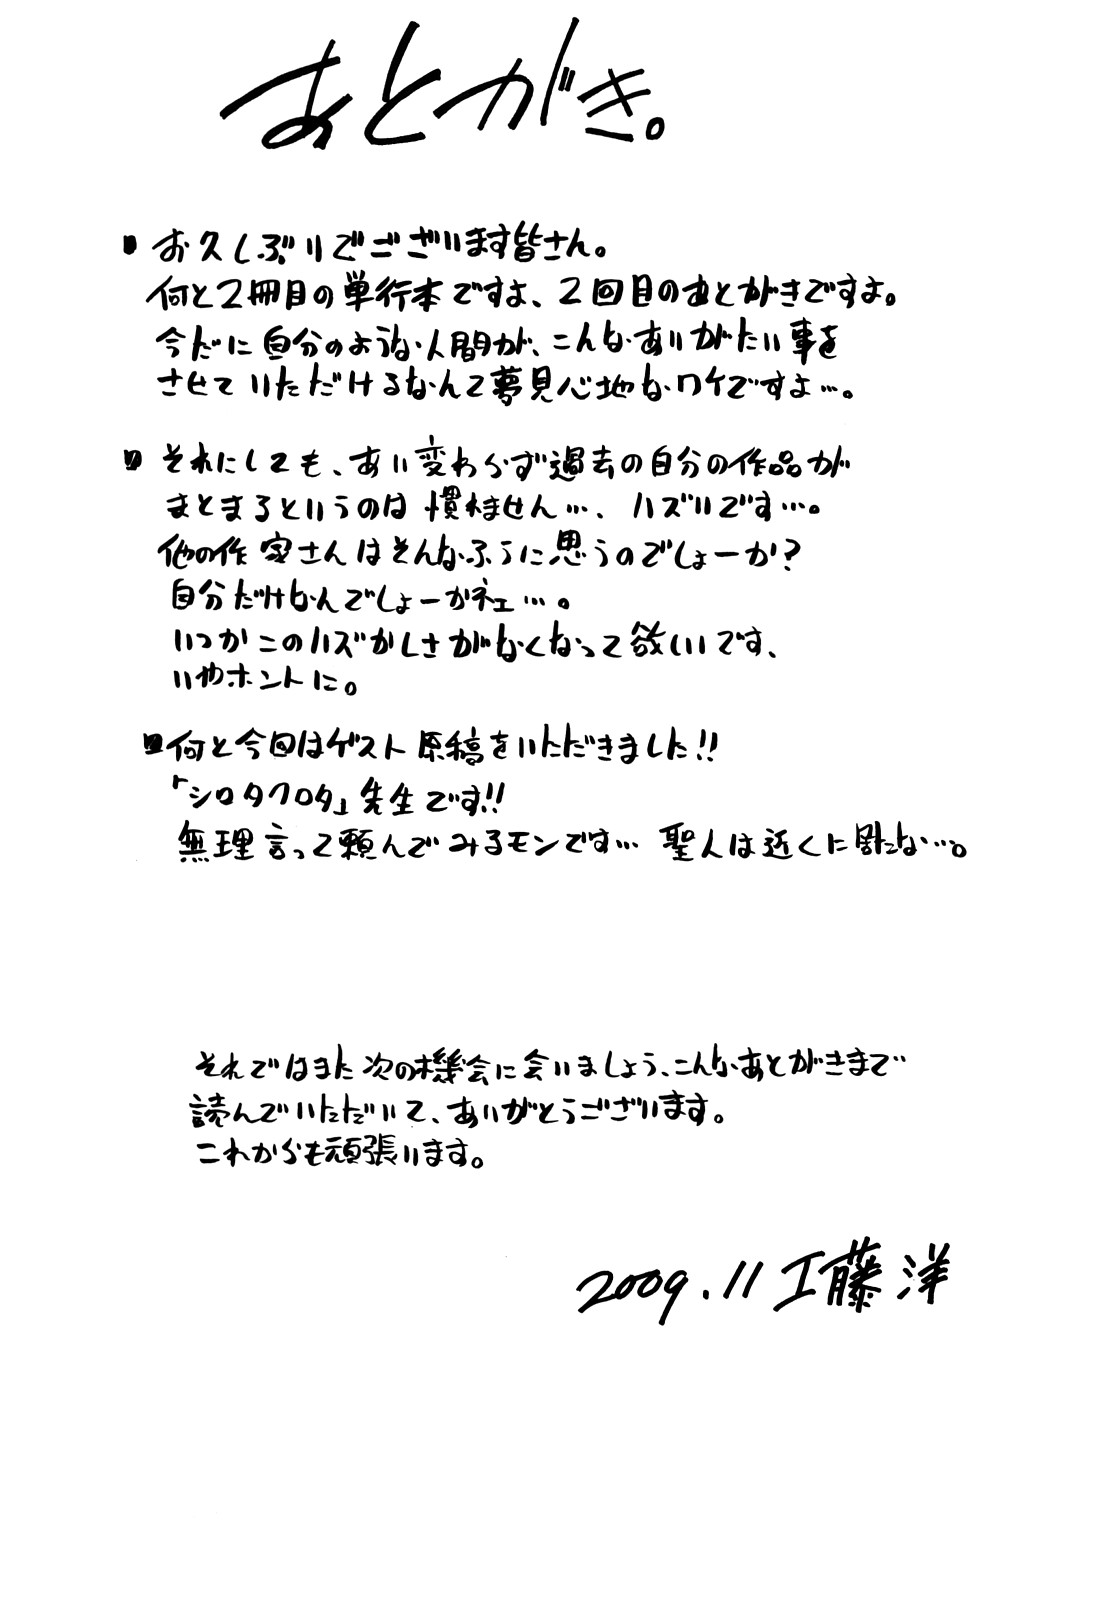 あとがき。
■お久しぶりでございます皆さん。
何と2冊目の単行本ですよ、2回目のあとがきですよ。
今だに自分のような人間が、こんなありがたい事を
させていただけるなんて夢見心地なワケですよ…。
■それにしても、あい変わらず過去の自分の作品が
まとまるというのは慣れません…、ハズいです…。
他の作家さんはそんなふうに思うのでしょーか?
自分だけなんでしょーかネェ…。
いつかこのハズかしさがなくなって欲しいです、
いやホントに。
■何と今回はゲスト原稿をいただきました!!
「シロタクロタ」先生です!!
無理言って頼んでみるモンです… 聖人は近くに居た な…。
それではまた次の機会に会いましょう、こんなあとがきまで
読んでいただいて、ありがとうございます。
これからも頑張ります。
2009.11 工藤洋